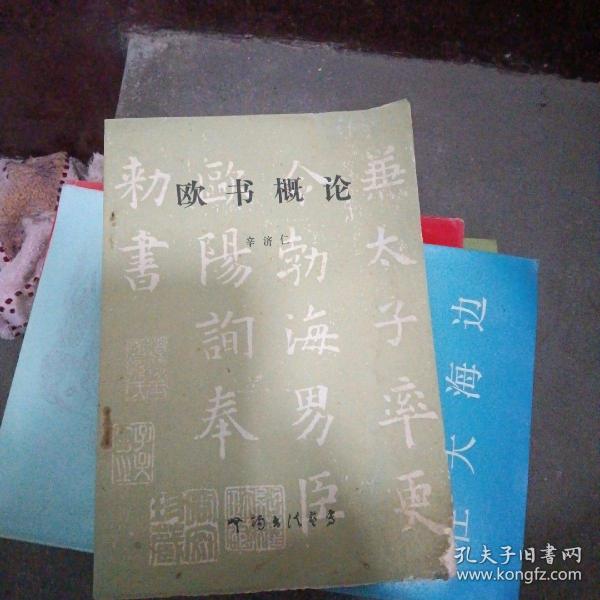 欧书概论
辛济仁
兼太子率更
令勃海男臣
歐陽詢奉
勅書
在大海边
孔夫子旧书网
www.kongfz.com